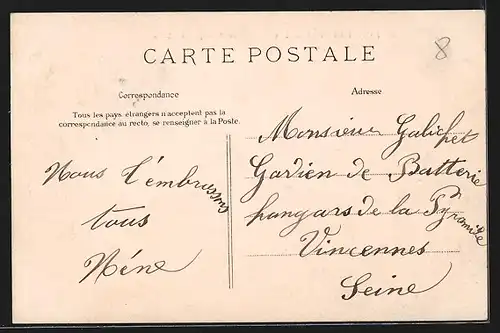 CARTE POSTALE
8
Correspondance
Adresse
Tous les pays étrangers n'acceptent pas la
correspondance au recto, se renseigner à la Poste.
Nous t'embrassons
tous
Néne
Monsieur Galichet
Gardien de Batterie
hangars de la Pyramide
Vincennes
Seine